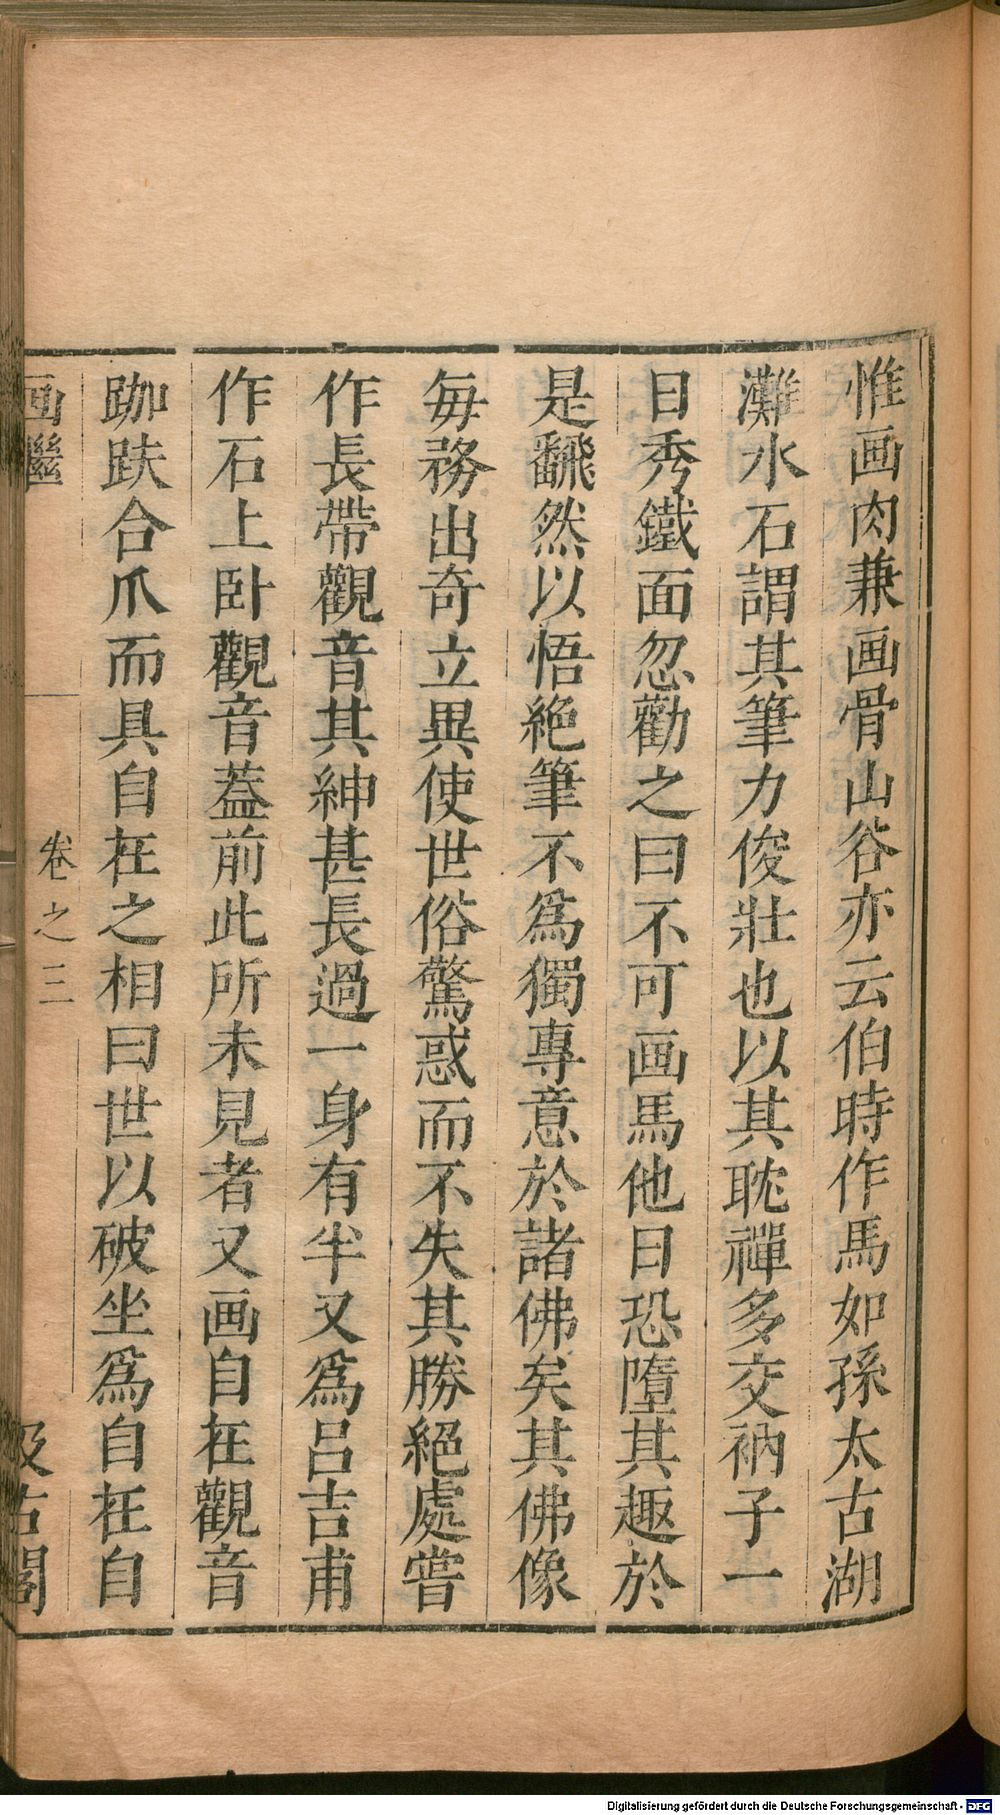 惟画肉兼画骨山谷亦云伯時作馬如孫太古湖
灘水石謂其筆力俊壯也以其耽禪多交衲子一
日秀鐵面忽勸之曰不可画馬他日恐墮其趣於
是飜然以悟絶筆不爲獨專意於諸佛矣其佛像
每務出奇立異使世俗驚惑而不失其勝絕處嘗
作長帶觀音其紳甚長過一身有半又爲呂吉甫
作石上卧觀音蓋前此所未見者又画自在觀音
跏趺合爪而具自在之相曰世以破坐爲自在自
画繼 卷之三 汲古閣
Digitalisierung gefördert durch die Deutsche Forschungsgemeinschaft - DFG